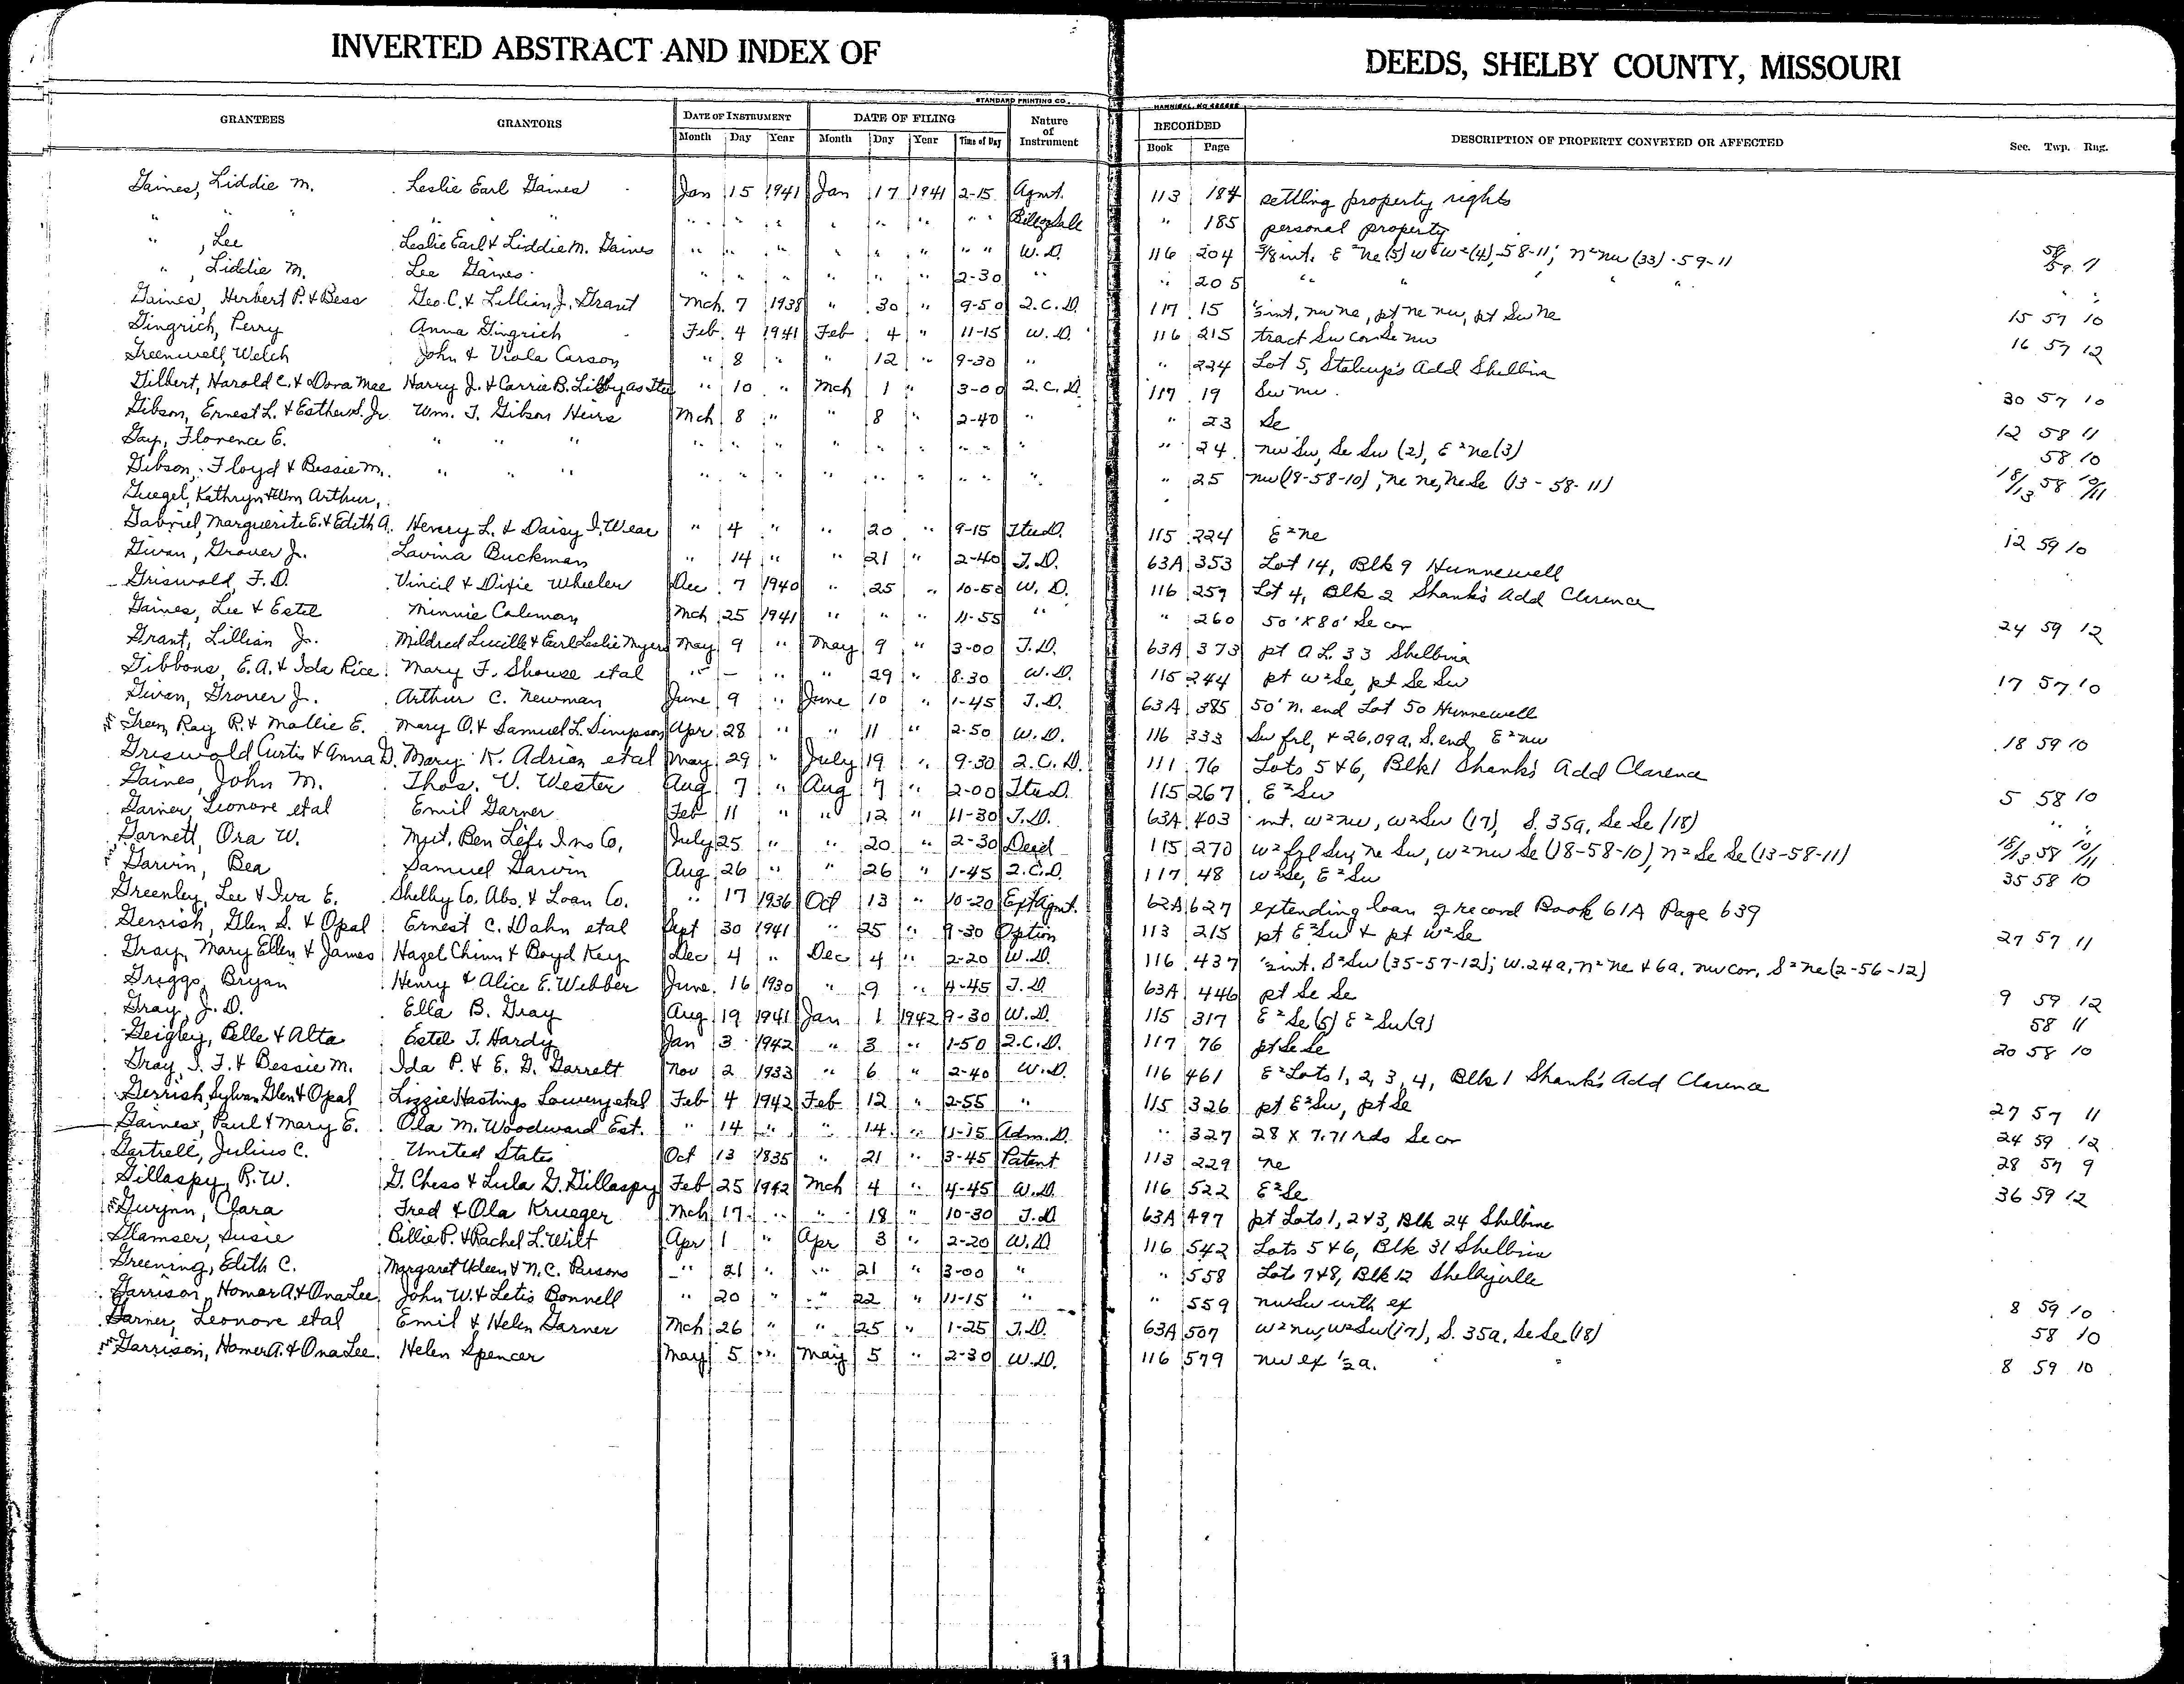 INVERTED ABSTRACT AND INDEX OF DEEDS, SHELBY COUNTY, MISSOURI
STANDARD PRINTING CO. HANNIBAL, MO
GRANTEES GRANTORS DATE OF INSTRUMENT DATE OF FILING Nature of Instrument RECORDED DESCRIPTION OF PROPERTY CONVEYED OR AFFECTED Sec. Twp. Rng.
Month Day Year Month Day Year Time of Day Book Page
Gaines, Liddie M. Leslie Earl Gaines Jan 15 1941 Jan 17 1941 2-15 Agmt. 113 184 settling property rights
" " " " " " " " " " " " " " Bill of Sale " 185 personal property
" , Lee Leslie Earl & Liddie M. Gaines " " " " " " " " W.D. 116 204 3/8 int. E²ne(5) w²w²(4), 58-11; n²nw(33)-59-11 58/59 11
" , Liddie M. Lee Gaines " " " " " " 2-30 " " 205 " " " " "
Gaines, Herbert P. & Bess Geo. C. & Lillian J. Grant Mch. 7 1938 " 30 " 9-50 Q.C.D. 117 15 ½ int, nw ne, pt ne nw, pt Sw ne 15 57 10
Gingrich, Perry Anna Gingrich Feb. 4 1941 Feb 4 " 11-15 W.D. 116 215 tract Sw cor Se nw 16 57 12
Greenwell, Welch John & Viola Carson " 8 " " 12 " 9-30 " " 224 Lot 5, Stalcup's Add Shelbina
Gilbert, Harold C. & Dora Mae Harry J. & Carrie B. Libby as Stee " 10 " Mch 1 " 3-00 Q.C.D. 117 19 Sw nw 30 57 10
Gibson, Ernest L. & Esther S. Jr. Wm. T. Gibson Heirs Mch 8 " " 8 " 2-40 " " 23 Se 12 58 11
Gay, Florence E. " " " " " " " " " " " " 24 nw Sw, Se Sw (2), E²ne(3) 58 10
Gibson, Floyd & Bessie M. " " " " " " " " " " " " 25 nw(18-58-10), ne ne, ne Se (13-58-11) 18/13 58 10/11
Guegel, Kathryn & Wm Arthur,
Gabriel, Marguerite E. & Edith A. Henry L. & Daisy I. Wear " 4 " " 20 " 9-15 Stee D. 115 224 E²ne 12 59 10
Givan, Grover Jr. Lavina Buckman " 14 " " 21 " 2-40 T.D. 63A 353 Lot 14, Blk 9 Hunnewell
Griswold, F.D. Vincil & Dixie Wheeler Dec 7 1940 " 25 " 10-50 W.D. 116 259 Lot 4, Blk 2 Shank's Add Clarence
Gaines, Lee & Estel Minnie Coleman Mch 25 1941 " " " 11-55 " " 260 50' x 80' Se cor 24 59 12
Grant, Lillian Jr. Mildred Lucille & Earl Leslie Myers May 9 " May 9 " 3-00 T.D. 63A 373 pt O.L. 33 Shelbina
Gibbons, E.A. & Ida Rice Mary F. Shouse etal " - " " 29 " 8-30 W.D. 115 244 pt w²Se, pt Se Sw 17 57 10
Givan, Grover Jr. Arthur C. Newman June 9 " June 10 " 1-45 T.D. 63A 385 50' n. end Lot 50 Hunnewell
Green, Ray R. & Mollie E. Mary O. & Samuel L. Simpson Apr 28 " " 11 " 2-50 W.D. 116 333 Sw frl, & 26.09a. S. end E²nw 18 59 10
Griswold Curtis & Anna D. Mary K. Adrian etal May 29 " July 19 " 9-30 Q.C.D. 111 76 Lots 5 & 6, Blk 1 Shank's Add Clarence
Gaines, John M. Thos. V. Wester Aug 7 " Aug 7 " 2-00 Stee D. 115 267 E²Sw 5 58 10
Garner, Leonore etal Emil Garner Feb 11 " " 12 " 11-30 T.D. 63A 403 int. w²nw, w²Sw (17), S. 35a, Se Se (18) " "
Garnett, Ora W. Mut. Ben Life Ins Co. July 25 " " 20 " 2-30 Deed 115 270 w²frl Sw, ne Sw, w²nw Se (18-58-10), n²Se Se (13-58-11) 18/13 58 10/11
Garvin, Bea Samuel Garvin Aug 26 " " 26 " 1-45 Q.C.D. 117 48 w²Se, E²Sw 35 58 10
Greenley, Lee & Iva E. Shelby Co. Abs. & Loan Co. " 17 1936 Oct 13 " 10-20 Ext Agmt. 62A 627 extending loan of record Book 61A Page 639
Gerrish, Glen S. & Opal Ernest C. Dahn etal Sept 30 1941 " 25 " 9-30 Option 113 215 pt E²Sw & pt w²Se 27 57 11
Gray, Mary Ellen & James Hazel Chinn & Boyd Key Dec 4 " Dec 4 " 2-20 W.D. 116 437 ½ int. S²Sw (35-57-12); w. 24a, n²ne & 6a. nw cor, S²ne (2-56-12)
Griggs, Bryan Henry & Alice E. Webber June 16 1930 " 9 " 4-45 T.D. 63A 446 pt Se Se 9 59 12
Gray, J.D. Ella B. Gray Aug 19 1941 Jan 1 1942 9-30 W.D. 115 317 E²Se(5) E²Sw(9) 58 11
Geigley, Belle & Alta Estel T. Hardy Jan 3 1942 " 3 " 1-50 Q.C.D. 117 76 pt Se Se 20 58 10
Gray, I.F. & Bessie M. Ida P. & E.G. Garrett Nov 2 1933 " 6 " 2-40 W.D. 116 461 E²Lots 1, 2, 3, 4, Blk 1 Shank's Add Clarence
Gerrish, Sylvan Glen & Opal Lizzie Hastings Lowery etal Feb 4 1942 Feb 12 " 2-55 " 115 326 pt E²Sw, pt Se 27 57 11
Gaines, Paul & Mary E. Ola M. Woodward Est. " 14 " " 14 " 11-15 Adm. D. " 327 28 x 7.71 rds Se cor 24 59 12
Gartrell, Julius C. United States Oct 13 1835 " 21 " 3-45 Patent 113 229 ne 28 57 9
Gillaspy, R.W. G. Chess & Lula G. Gillaspy Feb 25 1942 Mch 4 " 4-45 W.D. 116 522 E²Se 36 59 12
Gwynn, Clara Fred & Ola Krueger Mch 17 " " 18 " 10-30 T.D. 63A 497 pt Lots 1, 2 & 3, Blk 24 Shelbina
Glamser, Susie Billie P. & Rachel L. Wilt Apr 1 " Apr 3 " 2-20 W.D. 116 542 Lots 5 & 6, Blk 31 Shelbina
Greening, Edith C. Margaret Udeen & N.C. Parsons " 21 " " 21 " 3-00 " " 558 Lots 7 & 8, Blk 12 Shelbyville
Garrison, Homer A. & Ona Lee John W. & Letis Bonnell " 20 " " 22 " 11-15 " " 559 nw Sw with ex 8 59 10
Garner, Leonore etal Emil & Helen Garner Mch 26 " " 25 " 1-25 T.D. 63A 507 w²nw, w²Sw (17), S. 35a, Se Se (18) 58 10
Garrison, Homer A. & Ona Lee Helen Spencer May 5 " May 5 " 2-30 W.D. 116 579 nw ex ½a. 8 59 10